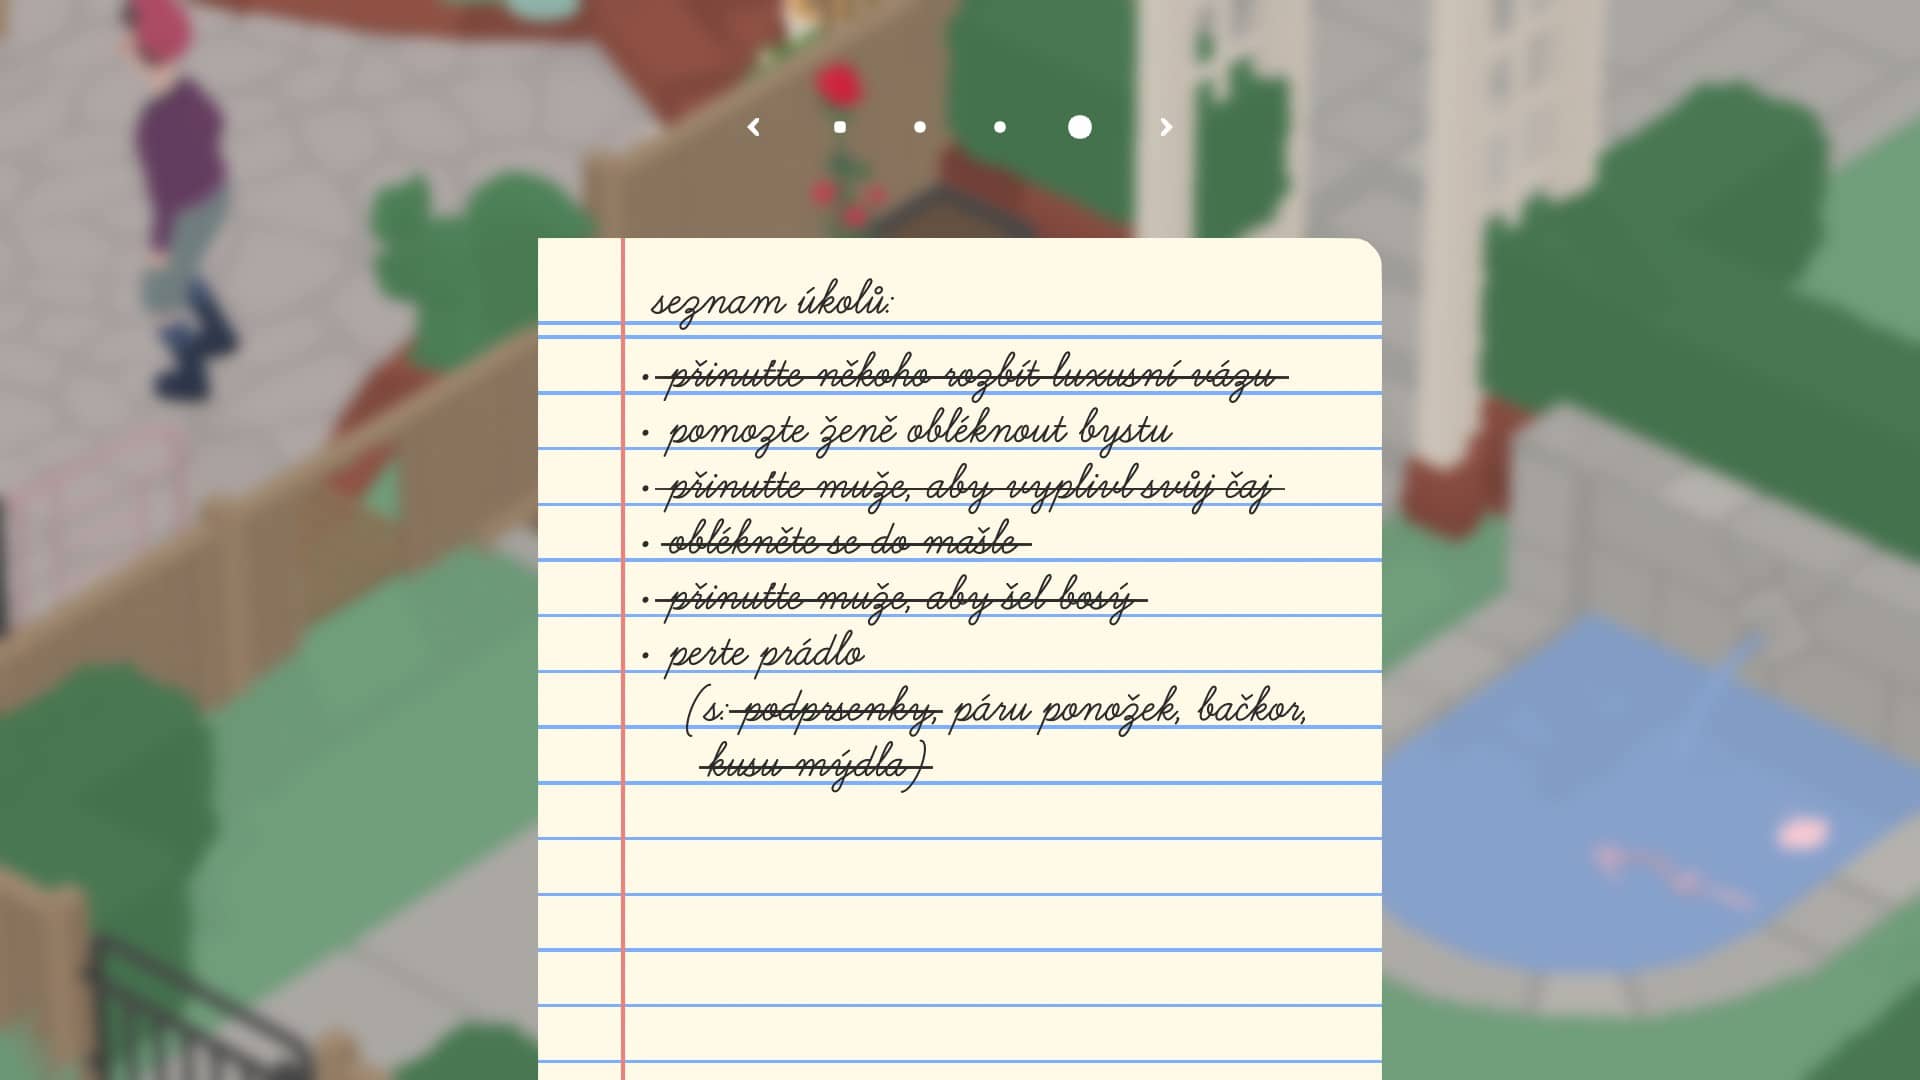 seznam úkolů:
• přinuťte někoho rozbít luxusní vázu
• pomozte ženě obléknout bystu
• přinuťte muže, aby vyplivl svůj čaj
• oblékněte se do mašle
• přinuťte muže, aby šel bosý
• perte prádlo
(s: podprsenky, páru ponožek, bačkor,
kusu mýdla)